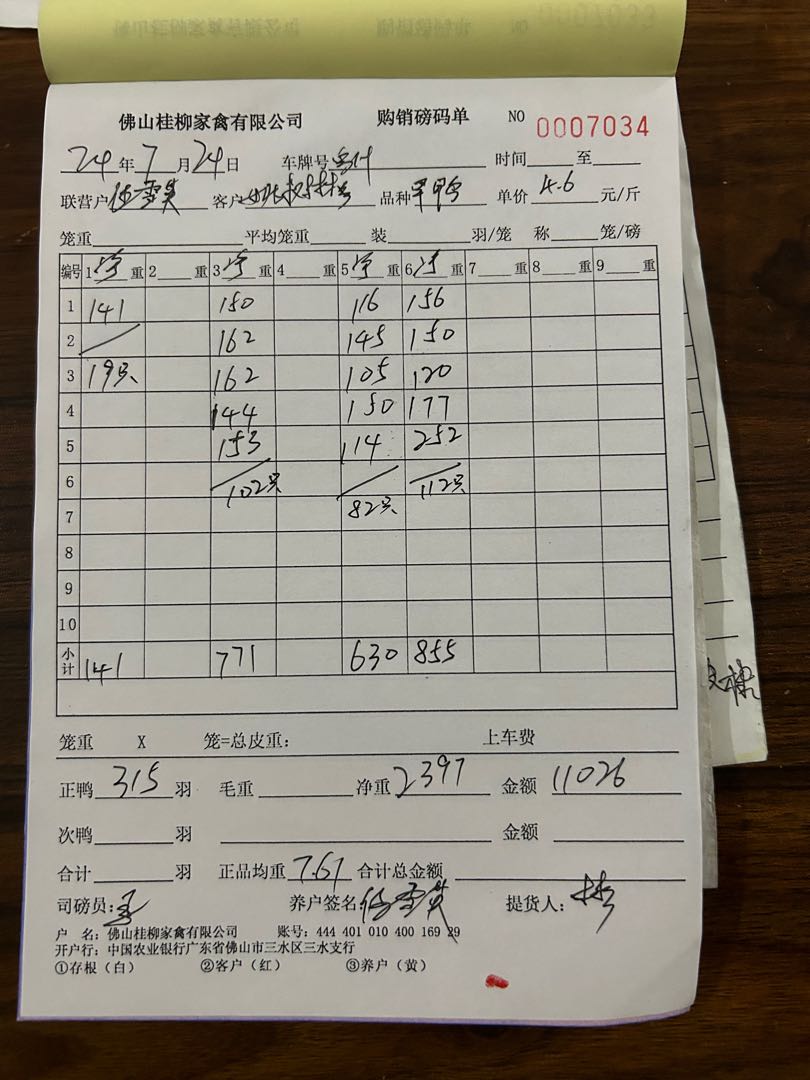 佛山桂柳家禽有限公司 购销磅码单 NO 0007034
24年7月24日 车牌号 时间____至____
联营户 客户 品种 单价4.6元/斤
笼重____平均笼重____装____羽/笼 称____笼/磅
编号 1净重 2____重 3净重 4____重 5净重 6净重 7____重 8____重 9____重
1 141 150 116 156
2 162 145 150
3 19只 162 105 120
4 144 150 177
5 153 114 252
6 102只 112只
7 82只
8
9
10
小计 141 771 630 855
笼重 X 笼=总皮重： 上车费
正鸭315羽 毛重____净重2397 金额11026
次鸭____羽 ____金额____
合计____羽 正品均重7.61合计总金额____
司磅员： 养户签名 提货人：
户 名：佛山桂柳家禽有限公司 账号：444 401 010 400 169 29
开户行：中国农业银行广东省佛山市三水区三水支行
①存根（白） ②客户（红） ③养户（黄）